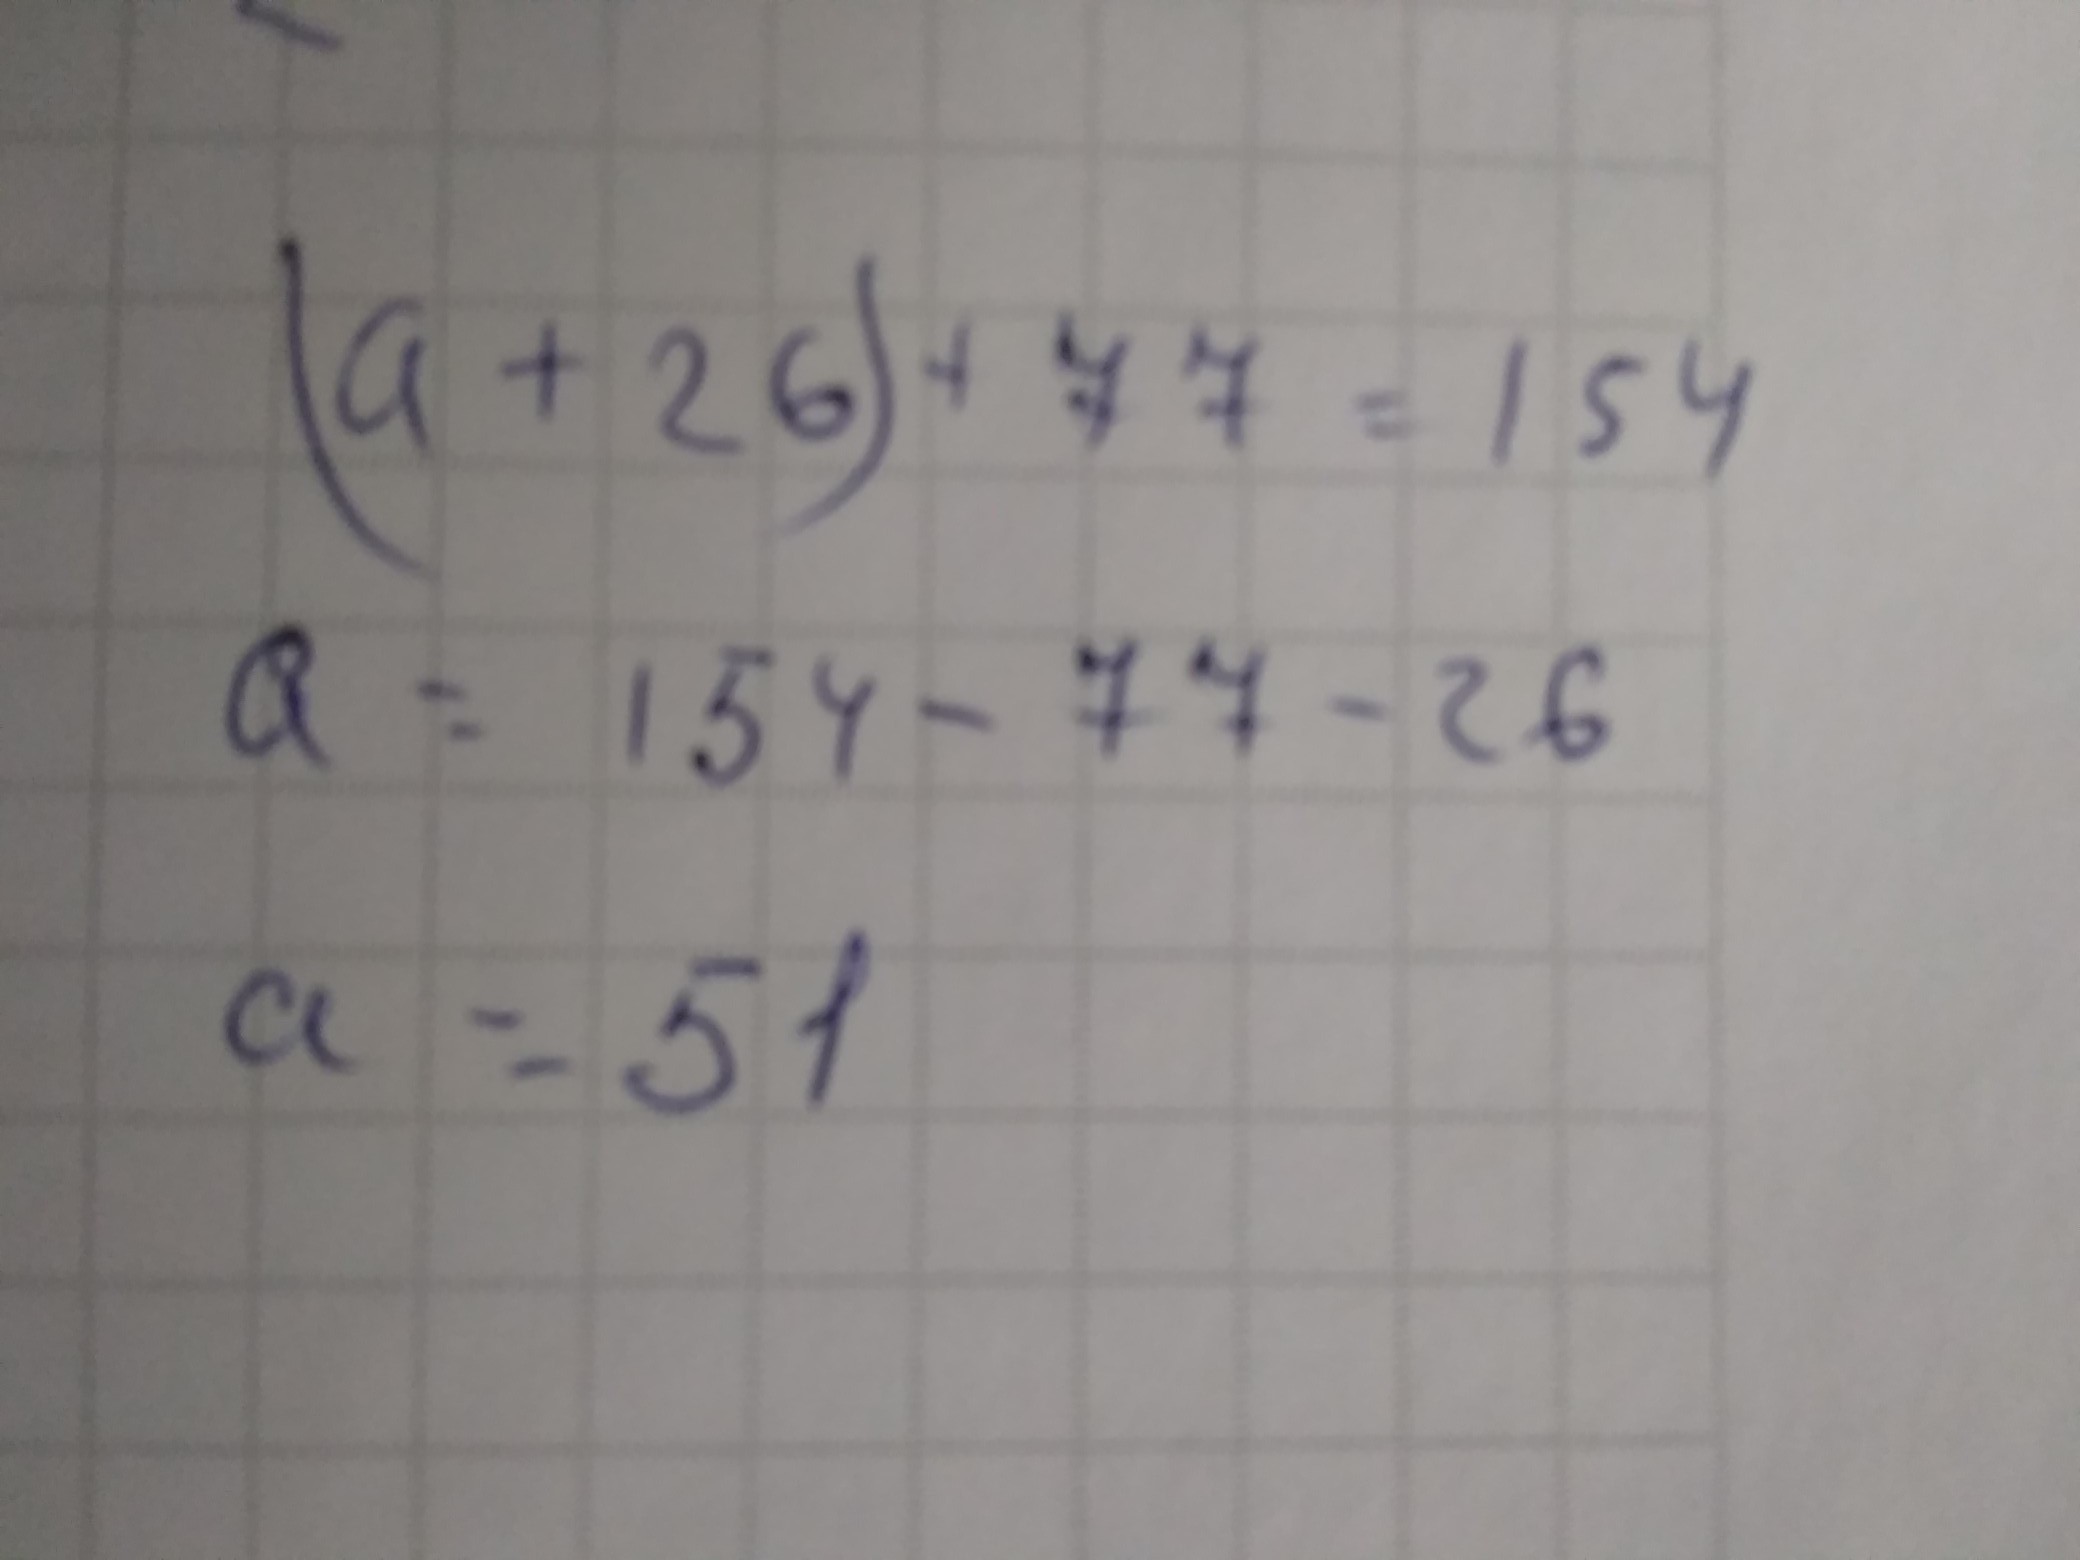 (a + 26) + 77 = 154
a = 154 - 77 - 26
a = 51